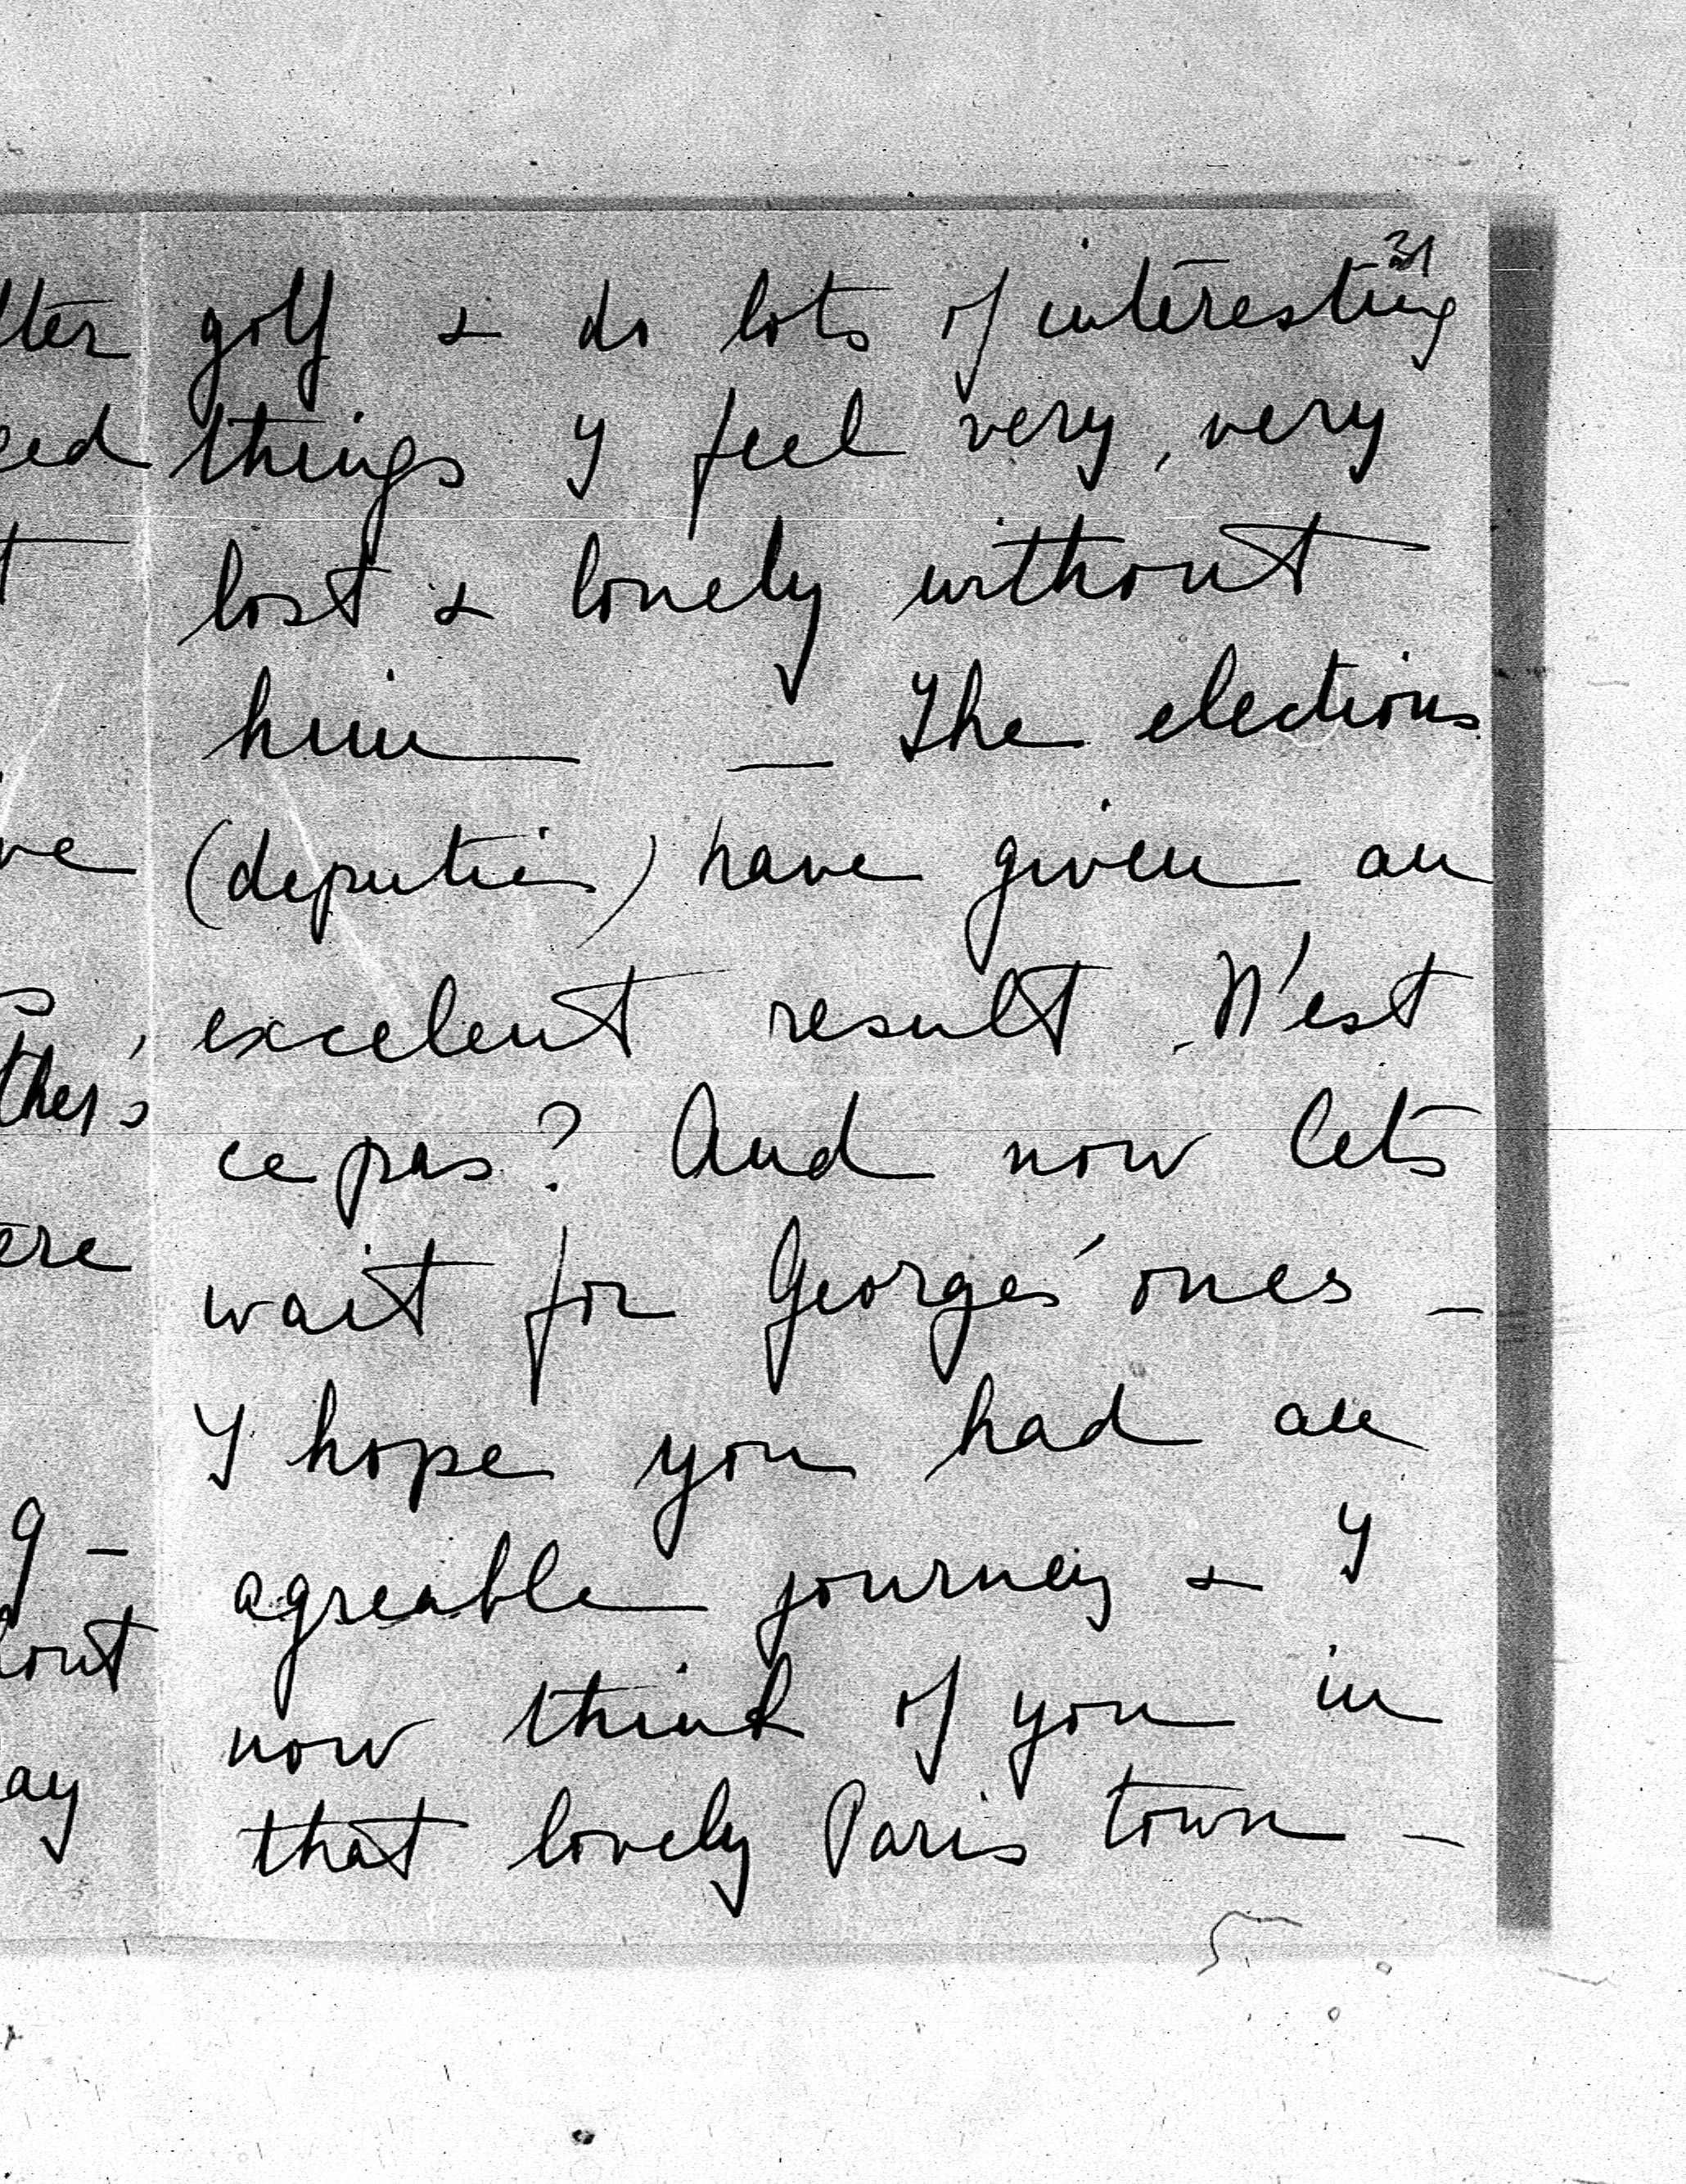 31
golf & do lots of interesting
things I feel very, very
lost & lonely without
him — The elections
(deputies) have given an
excelent result. N'est
ce pas? And now let's
wait for George's ones —
I hope you had an
agreable journey & I
now think of you in
that lovely Paris town —
ere
ay